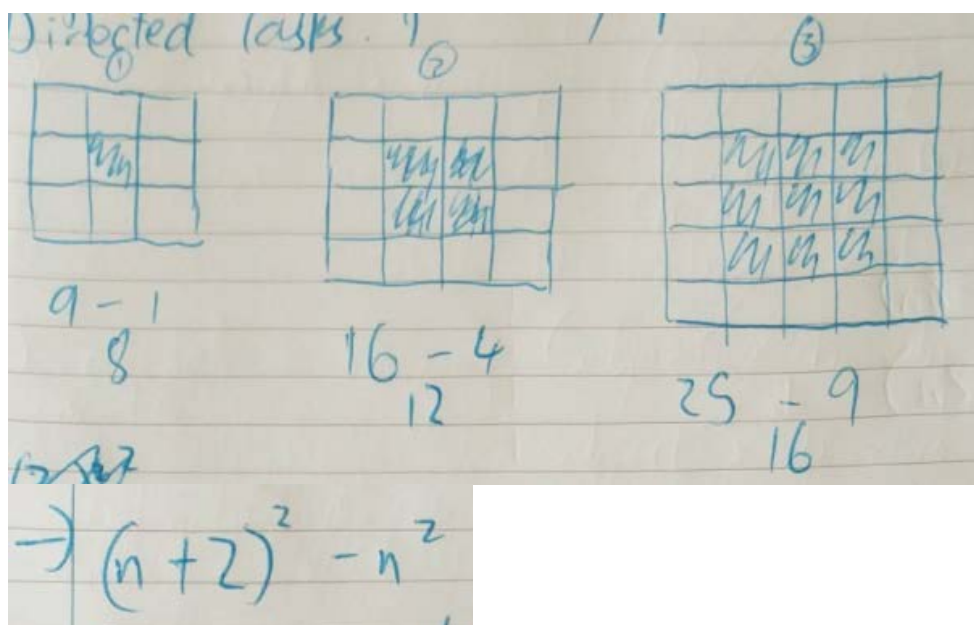 Directed Tasks.
① ② ③
9 - 1
8
16 - 4
12
25 - 9
16
→ (n + 2)² - n²